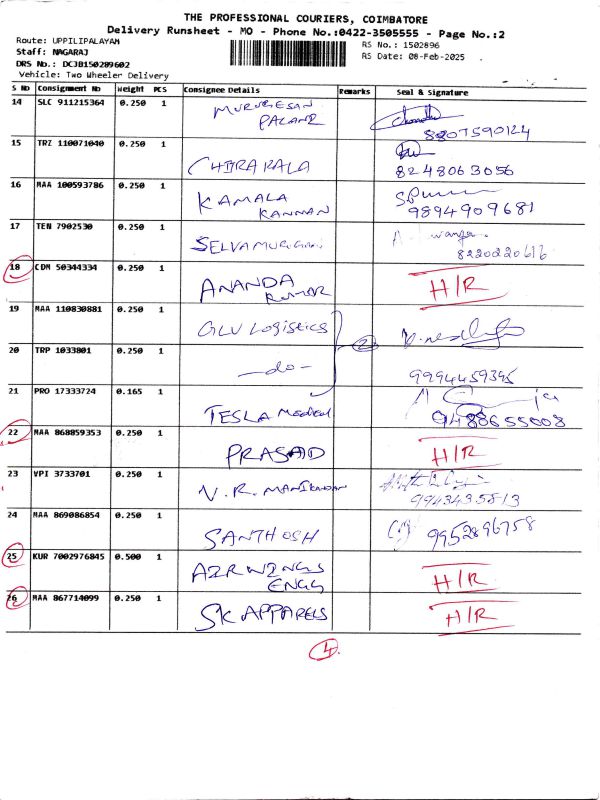 THE PROFESSIONAL COURIERS, COIMBATORE
Delivery Runsheet - MO - Phone No.:0422-3505555 - Page No.:2
Route: UPPILIPALAYAM
RS No.: 1502896
Staff: NAGARAJ
RS Date: 08-Feb-2025
DRS No.: DCJB150289602
Vehicle: Two Wheeler Delivery
S No Consignment No Weight PCS Consignee Details Remarks Seal & Signature
14 SLC 911215364 0.250 1 MURUGESAN
PALANI
8807590124
15 TRZ 110071040 0.250 1 CHITRAKALA
8248063056
16 MAA 100593786 0.250 1 KAMALA
KANNAN
9894909681
17 TEN 7902530 0.250 1 SELVAMURUGAN
8220220616
18 CDM 50344334 0.250 1 ANANDA
KUMAR
H/R
19 MAA 110830881 0.250 1 GLV Logistics
2
20 TRP 1033801 0.250 1 —do—
9994459395
21 PRO 17333724 0.165 1 TESLA Medical
9488655008
22 MAA 868859353 0.250 1 PRASAD H/R
23 VPI 3733701 0.250 1 V.R. MANIKANDAN
9943435813
24 MAA 869086854 0.250 1 SANTHOSH 9952896758
25 KUR 7002976845 0.500 1 AIRWINGS
ENGG
H/R
26 MAA 867714099 0.250 1 SK APPARELS H/R
4